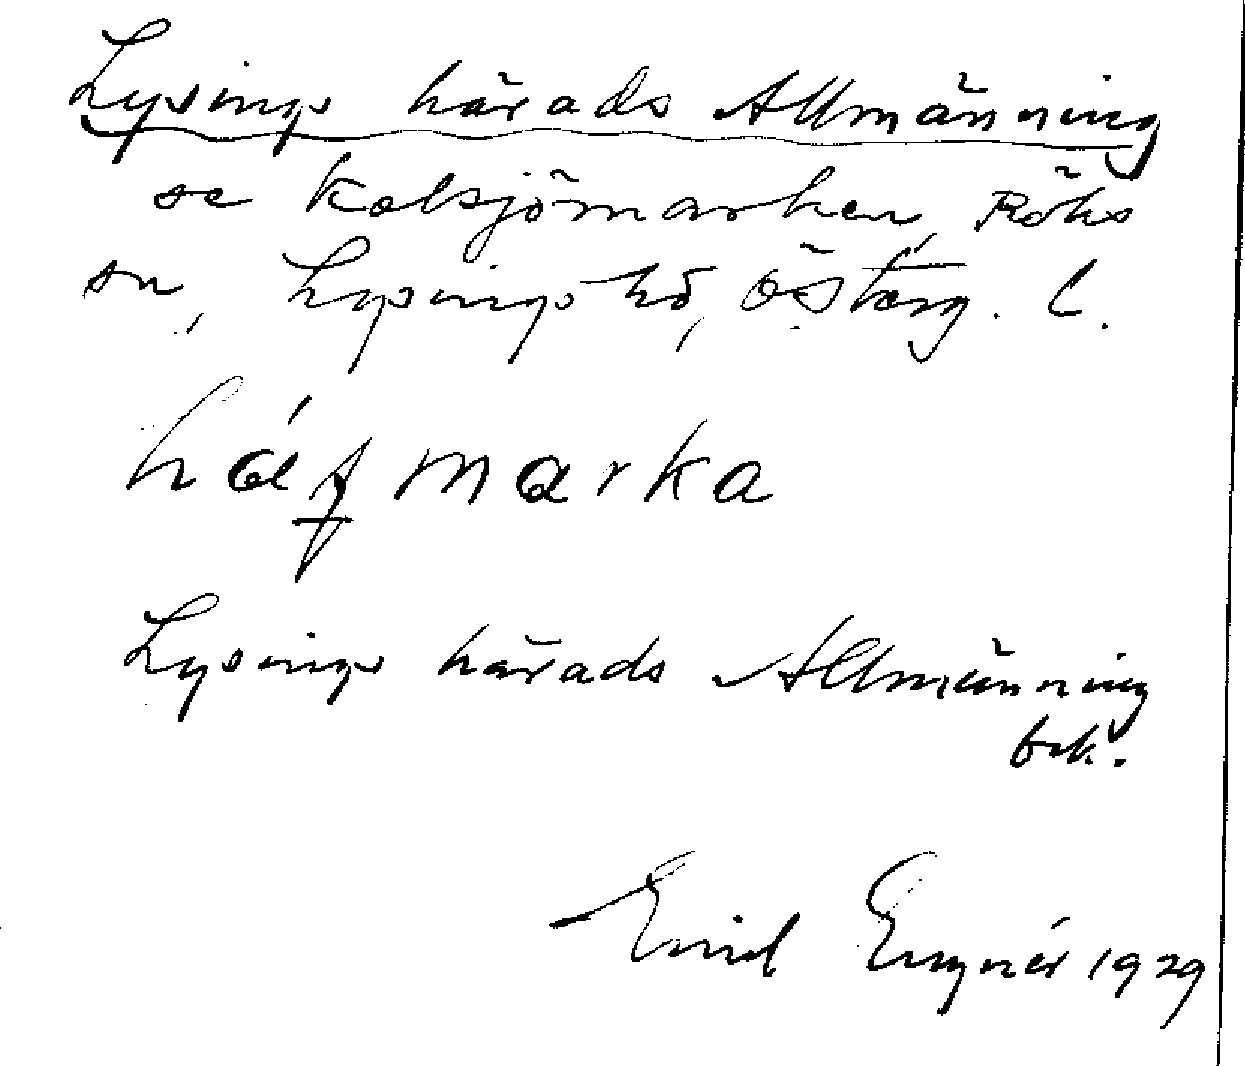 Lysings härads Allmänning
se Kolsjömarken, Röks
sn, Lysings hd, Österg. l.
Lysings härads Allmänning
bek.
Emil Engnér 1929